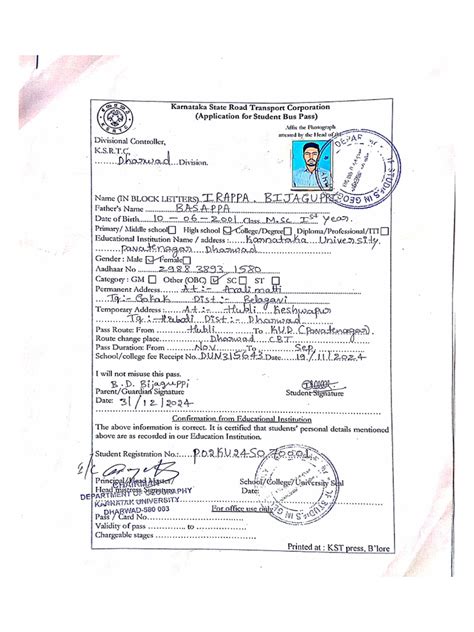 Karnataka State Road Transport Corporation
(Application for Student Bus Pass)
Affix the Photograph
attested by the Head of the
Divisional Controller,
K.S.R.T.C.
Dharwad Division.
Name (IN BLOCK LETTERS) IRAPPA. BIJAGUPPI
Father's Name BASAPPA
Date of Birth 10-06-2001 Class M.Sc Ist year.
Primary/ Middle school High school College/Degree Diploma/Professional/ITI
Educational Institution Name / address: Karnataka University
Pavatenagar Dharwad
Gender: Male Female
Aadhaar No 2988 3893 1580
Category: GM Other (OBC) SC ST
Permanent Address At:- Aralimatti
Tq:- Gokak Dist:- Belagavi
Temporary Address: At:- Hubli Keshwapur
Tq:- Hubali Dist:- Dharwad
Pass Route: From Hubli To K.U.D (Pavatenagar)
Route change place Dharwad CBT
Pass Duration: From Nov To Sep
School/college fee Receipt No. DUN315643 Date 19/11/2024
I will not misuse this pass.
B. D. Bijaguppi
Parent/Guardian Signature Student Signature
Date: 31/12/2024
Confirmation from Educational Institution
The above information is correct. It is certified that students' personal details mentioned
above are as recorded in our Education Institution.
Student Registration No.: P02KU24S070001
Principal/Head Master/ School/College/University Seal
Head mistress Signature
CHAIRMAN
DEPARTMENT OF GEOGRAPHY
KARNATAK UNIVERSITY
DHARWAD-580 003
For office use only
Pass / Card No
Validity of pass to
Chargeable stages
Printed at : KST press, B'lore